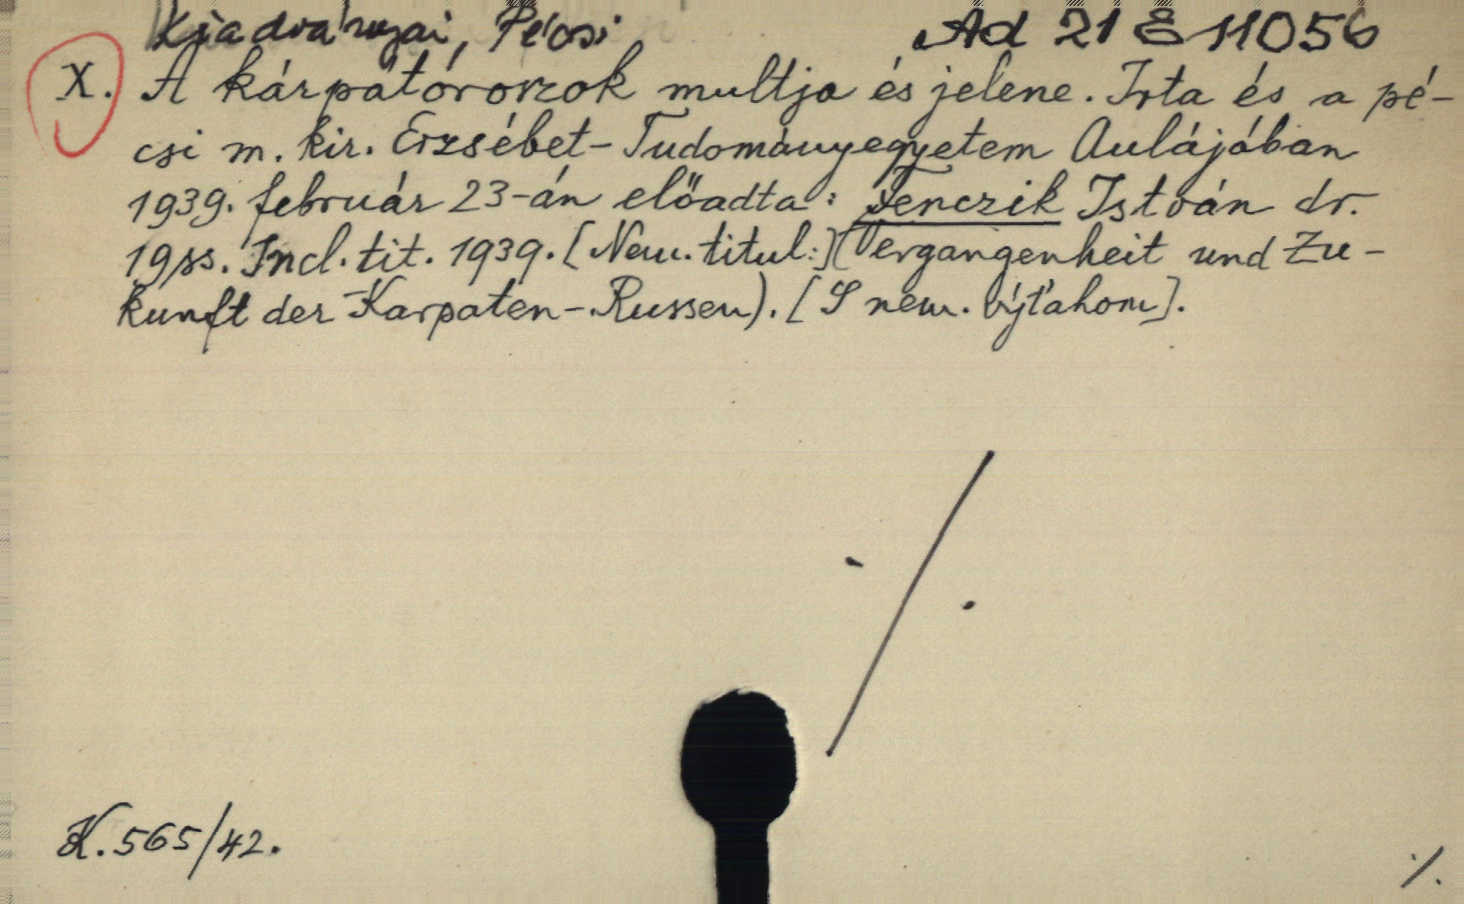 Kiadványai, Pécsi Ad 21 E 11056
X. A kárpátoroszok multja és jelene. Irta és a pé-
csi m. kir. Erzsébet-Tudományegyetem Aulájában
1939. február 23-án előadta: Fenczik István dr.
19ss. Incl. tit. 1939. [Nem. titul:] (Vergangenheit und Zu-
kunft der Karpaten-Russen). [S nem. výťahom].
K. 565/42.
·/.